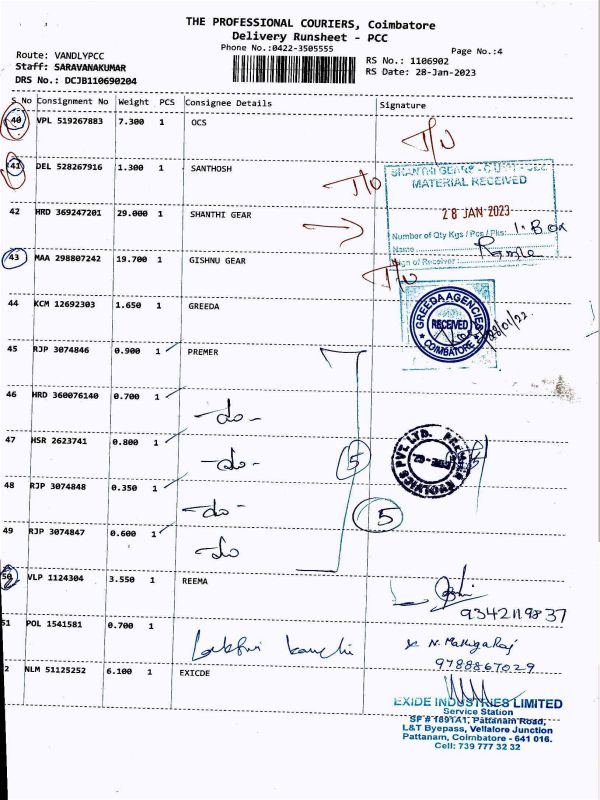 THE PROFESSIONAL COURIERS, Coimbatore
Delivery Runsheet - PCC
Phone No.:0422-3505555
Page No.:4
Route: VANDLYPCC
Staff: SARAVANAKUMAR
DRS No.: DCJB110690204
RS No.: 1106902
RS Date: 28-Jan-2023
S No Consignment No Weight PCS Consignee Details Signature
40 VPL 519267883 7.300 1 OCS
41 DEL 528267916 1.300 1 SANTHOSH
SHANTHI GEARS
MATERIAL RECEIVED
28 JAN 2023
42 HRD 369247201 29.000 1 SHANTHI GEAR
Number of Qty Kgs / Pcs / Pks: 1. Box
Name
Sign of Receiver
43 MAA 298807242 19.700 1 GISHNU GEAR
44 KCM 12692303 1.650 1 GREEDA
GREEDA AGENCIES
RECEIVED
COIMBATORE
28/01/22
45 RJP 3074846 0.900 1 PREMER
46 HRD 360076140 0.700 1
-do-
47 HSR 2623741 0.800 1
-do-
5
48 RJP 3074848 0.350 1
-do-
5
49 RJP 3074847 0.600 1
do
50 VLP 1124304 3.550 1 REEMA
9342119837
51 POL 1541581 0.700 1
9788867029
2 NLM 51125252 6.100 1 EXICDE
EXIDE INDUSTRIES LIMITED
Service Station
SF # 1891A1, Pattanam Road,
L&T Byepass, Vellalore Junction
Pattanam, Coimbatore - 641 016.
Cell: 739 777 32 32